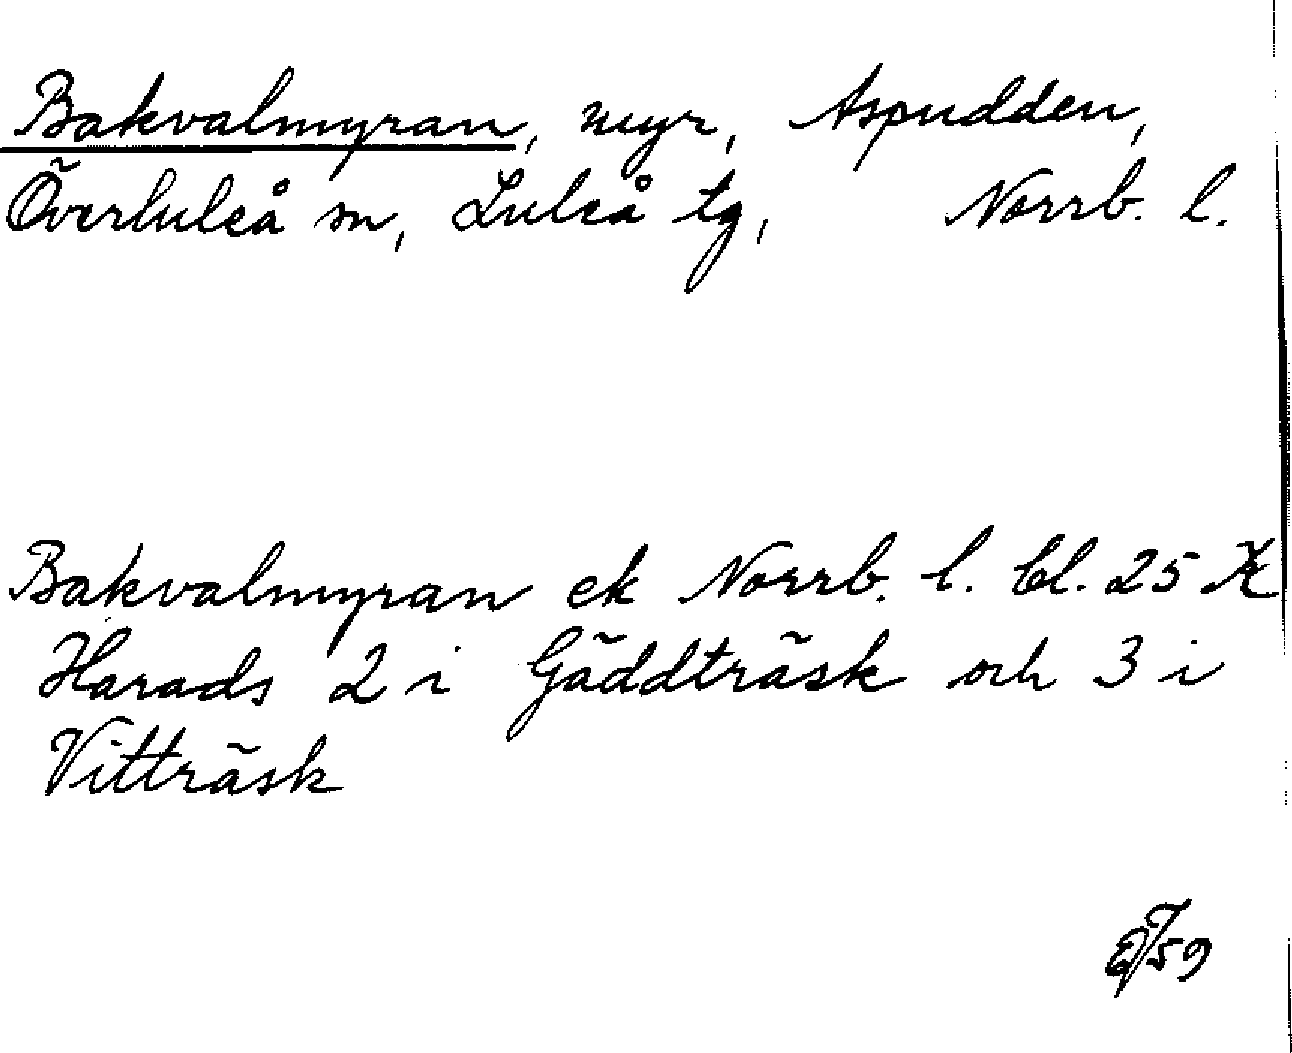 Bakvalmyran, myr, Aspudden,
Överluleå sn, Luleå tg, Norrb. l.
Bakvalmyran ek Norrb. l. bl. 25 K
Harads 2 i Gäddträsk och 3 i
Vitträsk
59